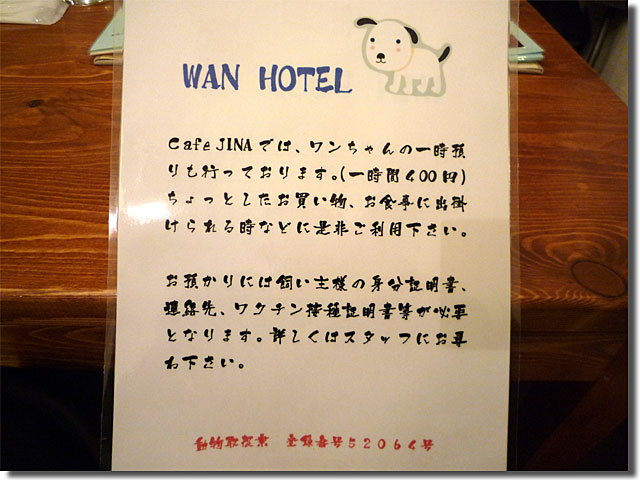 WAN HOTEL
Cafe JINAでは、ワンちゃんの一時預
りも行っております。(一時間400円)
ちょっとしたお買い物、お食事に出掛
けられる時などに是非ご利用下さい。
お預かりには飼い主様の身分証明書、
連絡先、ワクチン接種証明書等が必要
となります。詳しくはスタッフにお尋
ね下さい。
動物取扱業 登録番号52064号